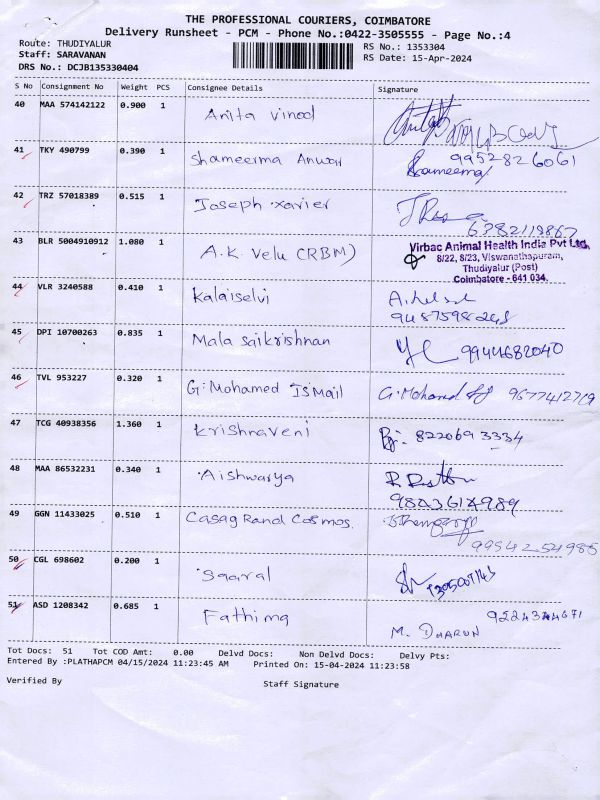 THE PROFESSIONAL COURIERS, COIMBATORE
Delivery Runsheet - PCM - Phone No.:0422-3505555 - Page No.:4
Route: THUDIYALUR RS No.: 1353304
Staff: SARAVANAN RS Date: 15-Apr-2024
DRS No.: DCJB135330404
S No Consignment No Weight PCS Consignee Details Signature
40 MAA 574142122 0.900 1 Anita vinod
41 TKY 490799 0.390 1 Shameerma Anwar 9952826061
Shameema
42 TRZ 57018389 0.515 1 Joseph xavier
6382119867
43 BLR 5004910912 1.080 1 A.K Velu (RBM) Virbac Animal Health India Pvt Ltd,
8/22, 8/23, Viswanathapuram,
Thudiyalur (Post)
Coimbatore - 641 034.
44 VLR 3240588 0.410 1 Kalaiselvi
45 DPI 10700263 0.835 1 Mala saikrishnan 9944682040
46 TVL 953227 0.320 1 G. Mohamed ISMail G. Mohamed 9677412719
47 TCG 40938356 1.360 1 Krishnaveni 8220693334
48 MAA 86532231 0.340 1 Aishwarya
49 GGN 11433025 0.510 1 Casag Rand Cosmos.
9954254985
50 CGL 698602 0.200 1 Saaral
51 ASD 1208342 0.685 1 Fathima M. DHARUN
Tot Docs: 51 Tot COD Amt: 0.00 Delvd Docs: Non Delvd Docs: Delvy Pts:
Entered By :PLATHAPCM 04/15/2024 11:23:45 AM Printed On: 15-04-2024 11:23:58
Verified By Staff Signature